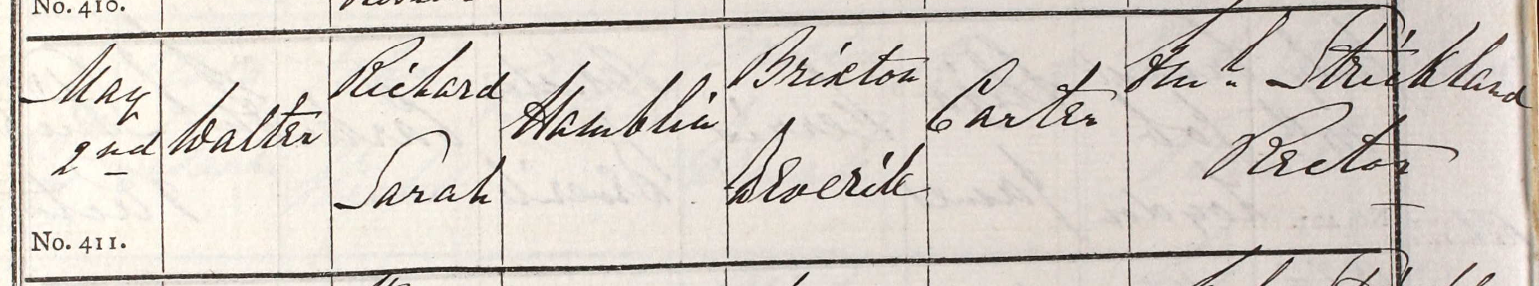 No. 410.
May
2nd
Walter
Richard
Sarah
Hamblin
Brixton
Deverill
Carter
Strickland
Rector
No. 411.